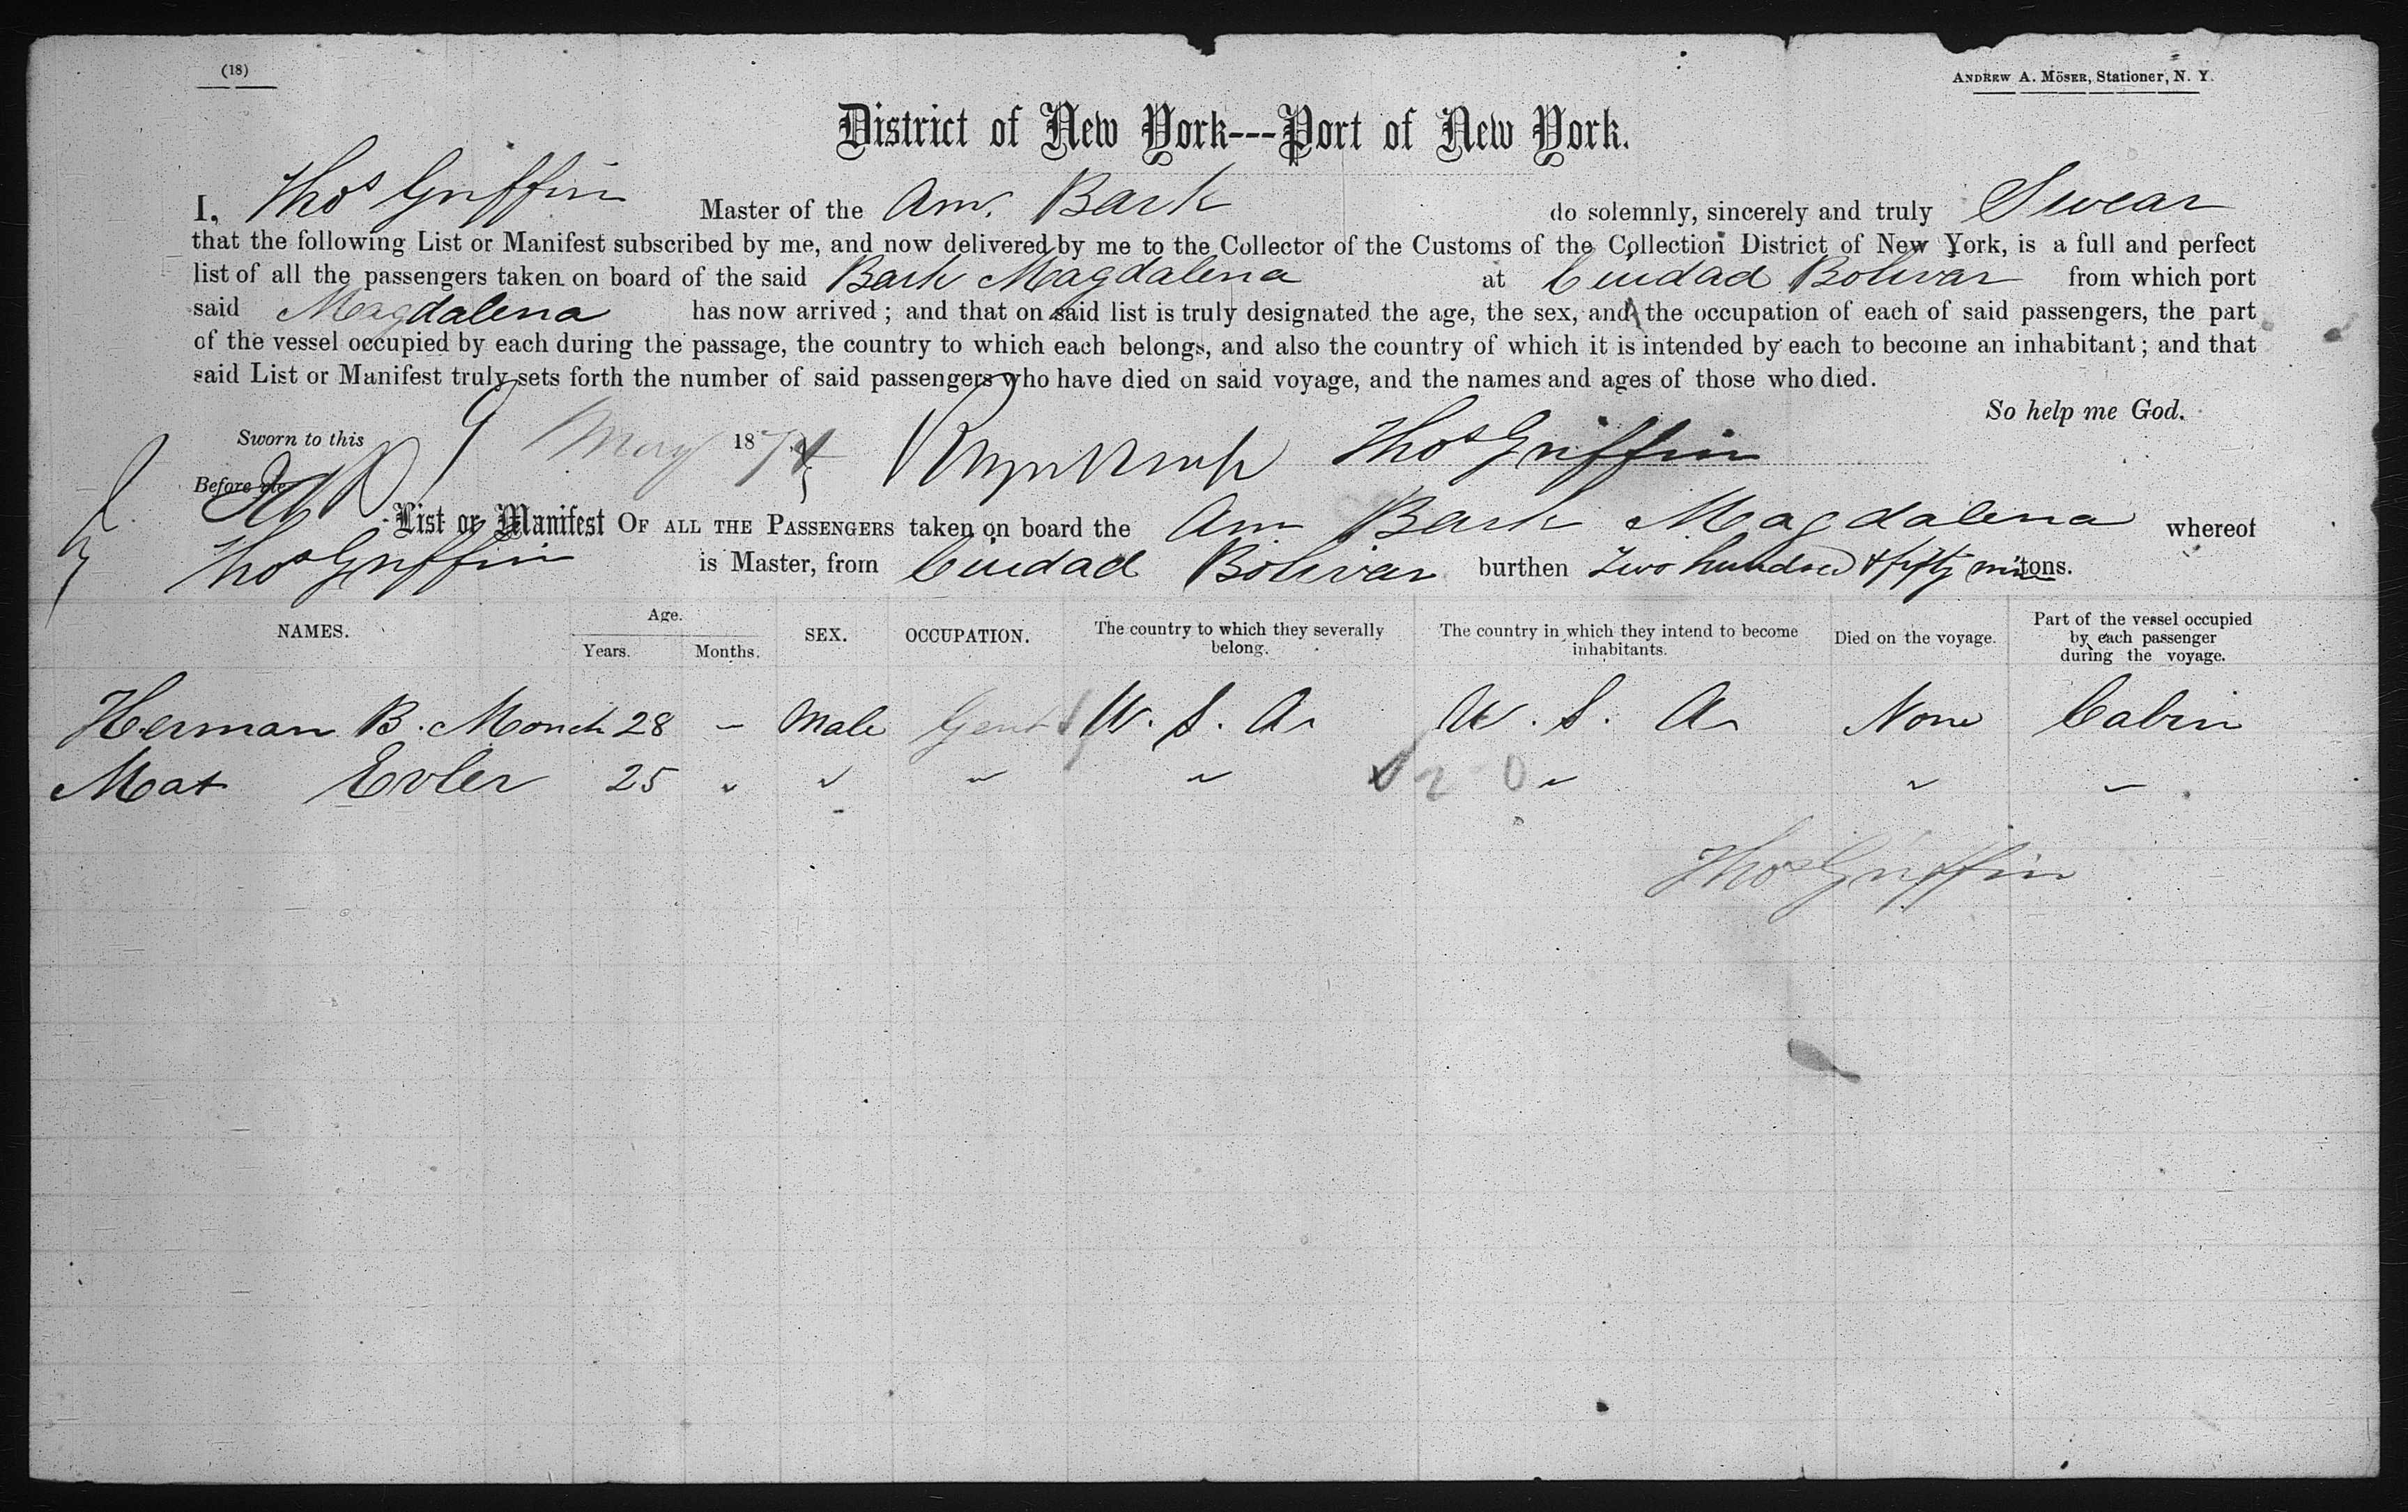 (18)
ANDREW A. MÖSER, Stationer, N. Y.
District of New York---Port of New York.
I, Thos Griffin Master of the Am. Bark do solemnly, sincerely and truly Swear
that the following List or Manifest subscribed by me, and now delivered by me to the Collector of the Customs of the Collection District of New York, is a full and perfect
list of all the passengers taken on board of the said Bark Magdalena at Ciudad Bolivar from which port
said Magdalena has now arrived; and that on said list is truly designated the age, the sex, and the occupation of each of said passengers, the part
of the vessel occupied by each during the passage, the country to which each belongs, and also the country of which it is intended by each to become an inhabitant; and that
said List or Manifest truly sets forth the number of said passengers who have died on said voyage, and the names and ages of those who died.
So help me God.
Sworn to this 9 May 1874 Thos Griffin
Before me
List or Manifest OF ALL THE PASSENGERS taken on board the Am Bark Magdalena whereof
Thos Griffin is Master, from Ciudad Bolivar burthen Two hundred & fifty nine tons.
NAMES. Age. Years. Months. SEX. OCCUPATION. The country to which they severally belong. The country in which they intend to become inhabitants. Died on the voyage. Part of the vessel occupied by each passenger during the voyage.
Herman B. Monch 28 – Male Gent U. S. A. U. S. A. None Cabin
Mat Evler 25 " " " " " " "
Thos Griffin